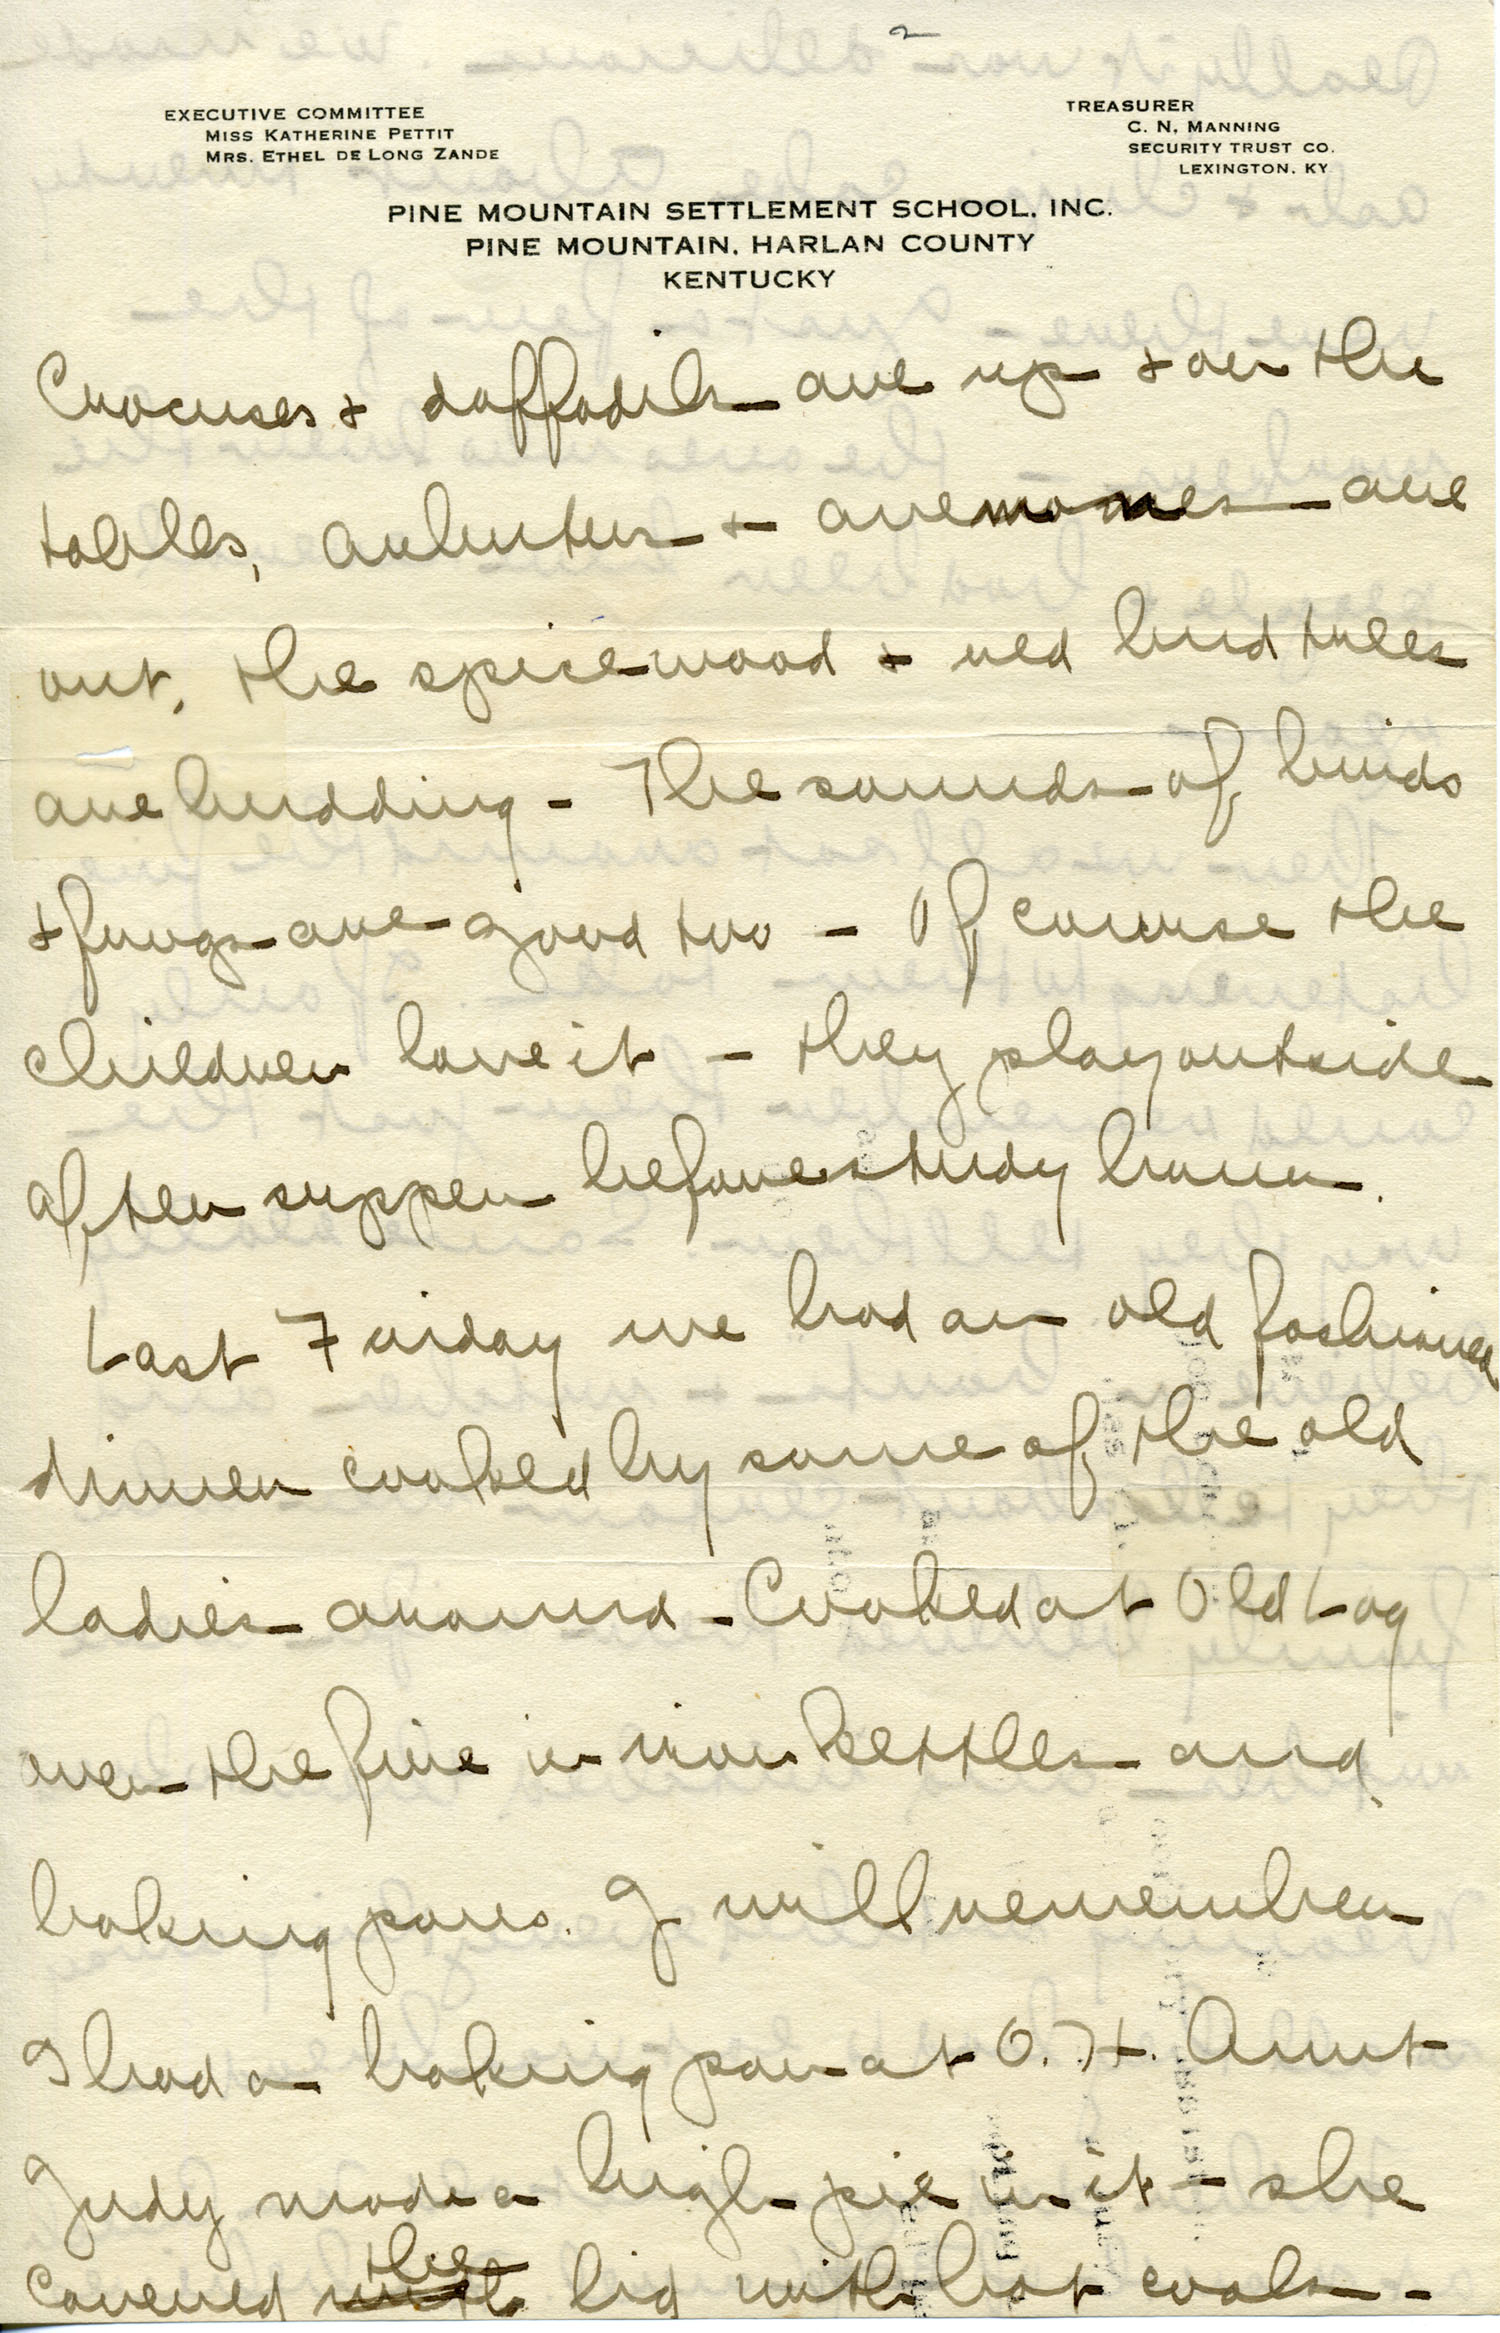 2
EXECUTIVE COMMITTEE
MISS KATHERINE PETTIT
MRS. ETHEL DE LONG ZANDE
TREASURER
C. N. MANNING
SECURITY TRUST CO.
LEXINGTON, KY
PINE MOUNTAIN SETTLEMENT SCHOOL, INC.
PINE MOUNTAIN, HARLAN COUNTY
KENTUCKY
Crocuses & daffodils are up & on the
tables, arbutus & anemones are
out, the spicewood & red bud trees
are budding - The sounds of birds
& frogs are good too - Of course the
children love it - they play outside
after supper before study hour.
Last Friday we had an old fashioned
dinner cooked by some of the old
ladies around - Cooked at Old Log
over the fire in iron kettles and
baking pans. I will remember
I had a baking pan at O. H. Aunt
Judy made a high pie in it - she
covered the lid with hot coals -